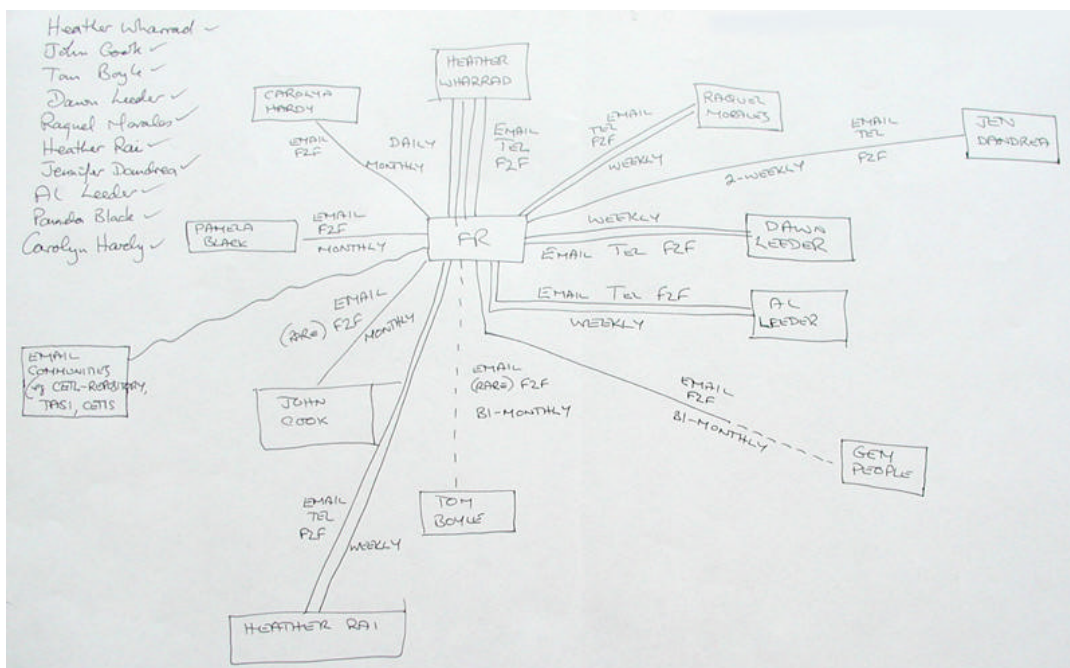 Heather Wharrad
John Cook
Tom Boyle
Dawn Leeder
Raquel Morales
Heather Rai
Jennifer Dandrea
AL Leeder
Pamela Black
Carolyn Hardy
HEATHER
WHARRAD
CAROLYN
HARDY
RAQUEL
MORALES
JEN
DANDREA
EMAIL
F2F
DAILY
MONTHLY
EMAIL
TEL
F2F
EMAIL
TEL
F2F
WEEKLY
EMAIL
TEL
F2F
2-WEEKLY
PAMELA
BLACK
EMAIL
F2F
MONTHLY
FR
WEEKLY
EMAIL TEL F2F
DAWN
LEEDER
EMAIL TEL F2F
WEEKLY
AL
LEEDER
EMAIL
(RARE) F2F
MONTHLY
EMAIL
COMMUNITIES
(eg CETL-REPOSITORY,
TASI, CETIS
JOHN
COOK
EMAIL
(RARE) F2F
BI-MONTHLY
EMAIL
F2F
BI-MONTHLY
GEM
PEOPLE
EMAIL
TEL
F2F
WEEKLY
TOM
BOYLE
HEATHER RAI